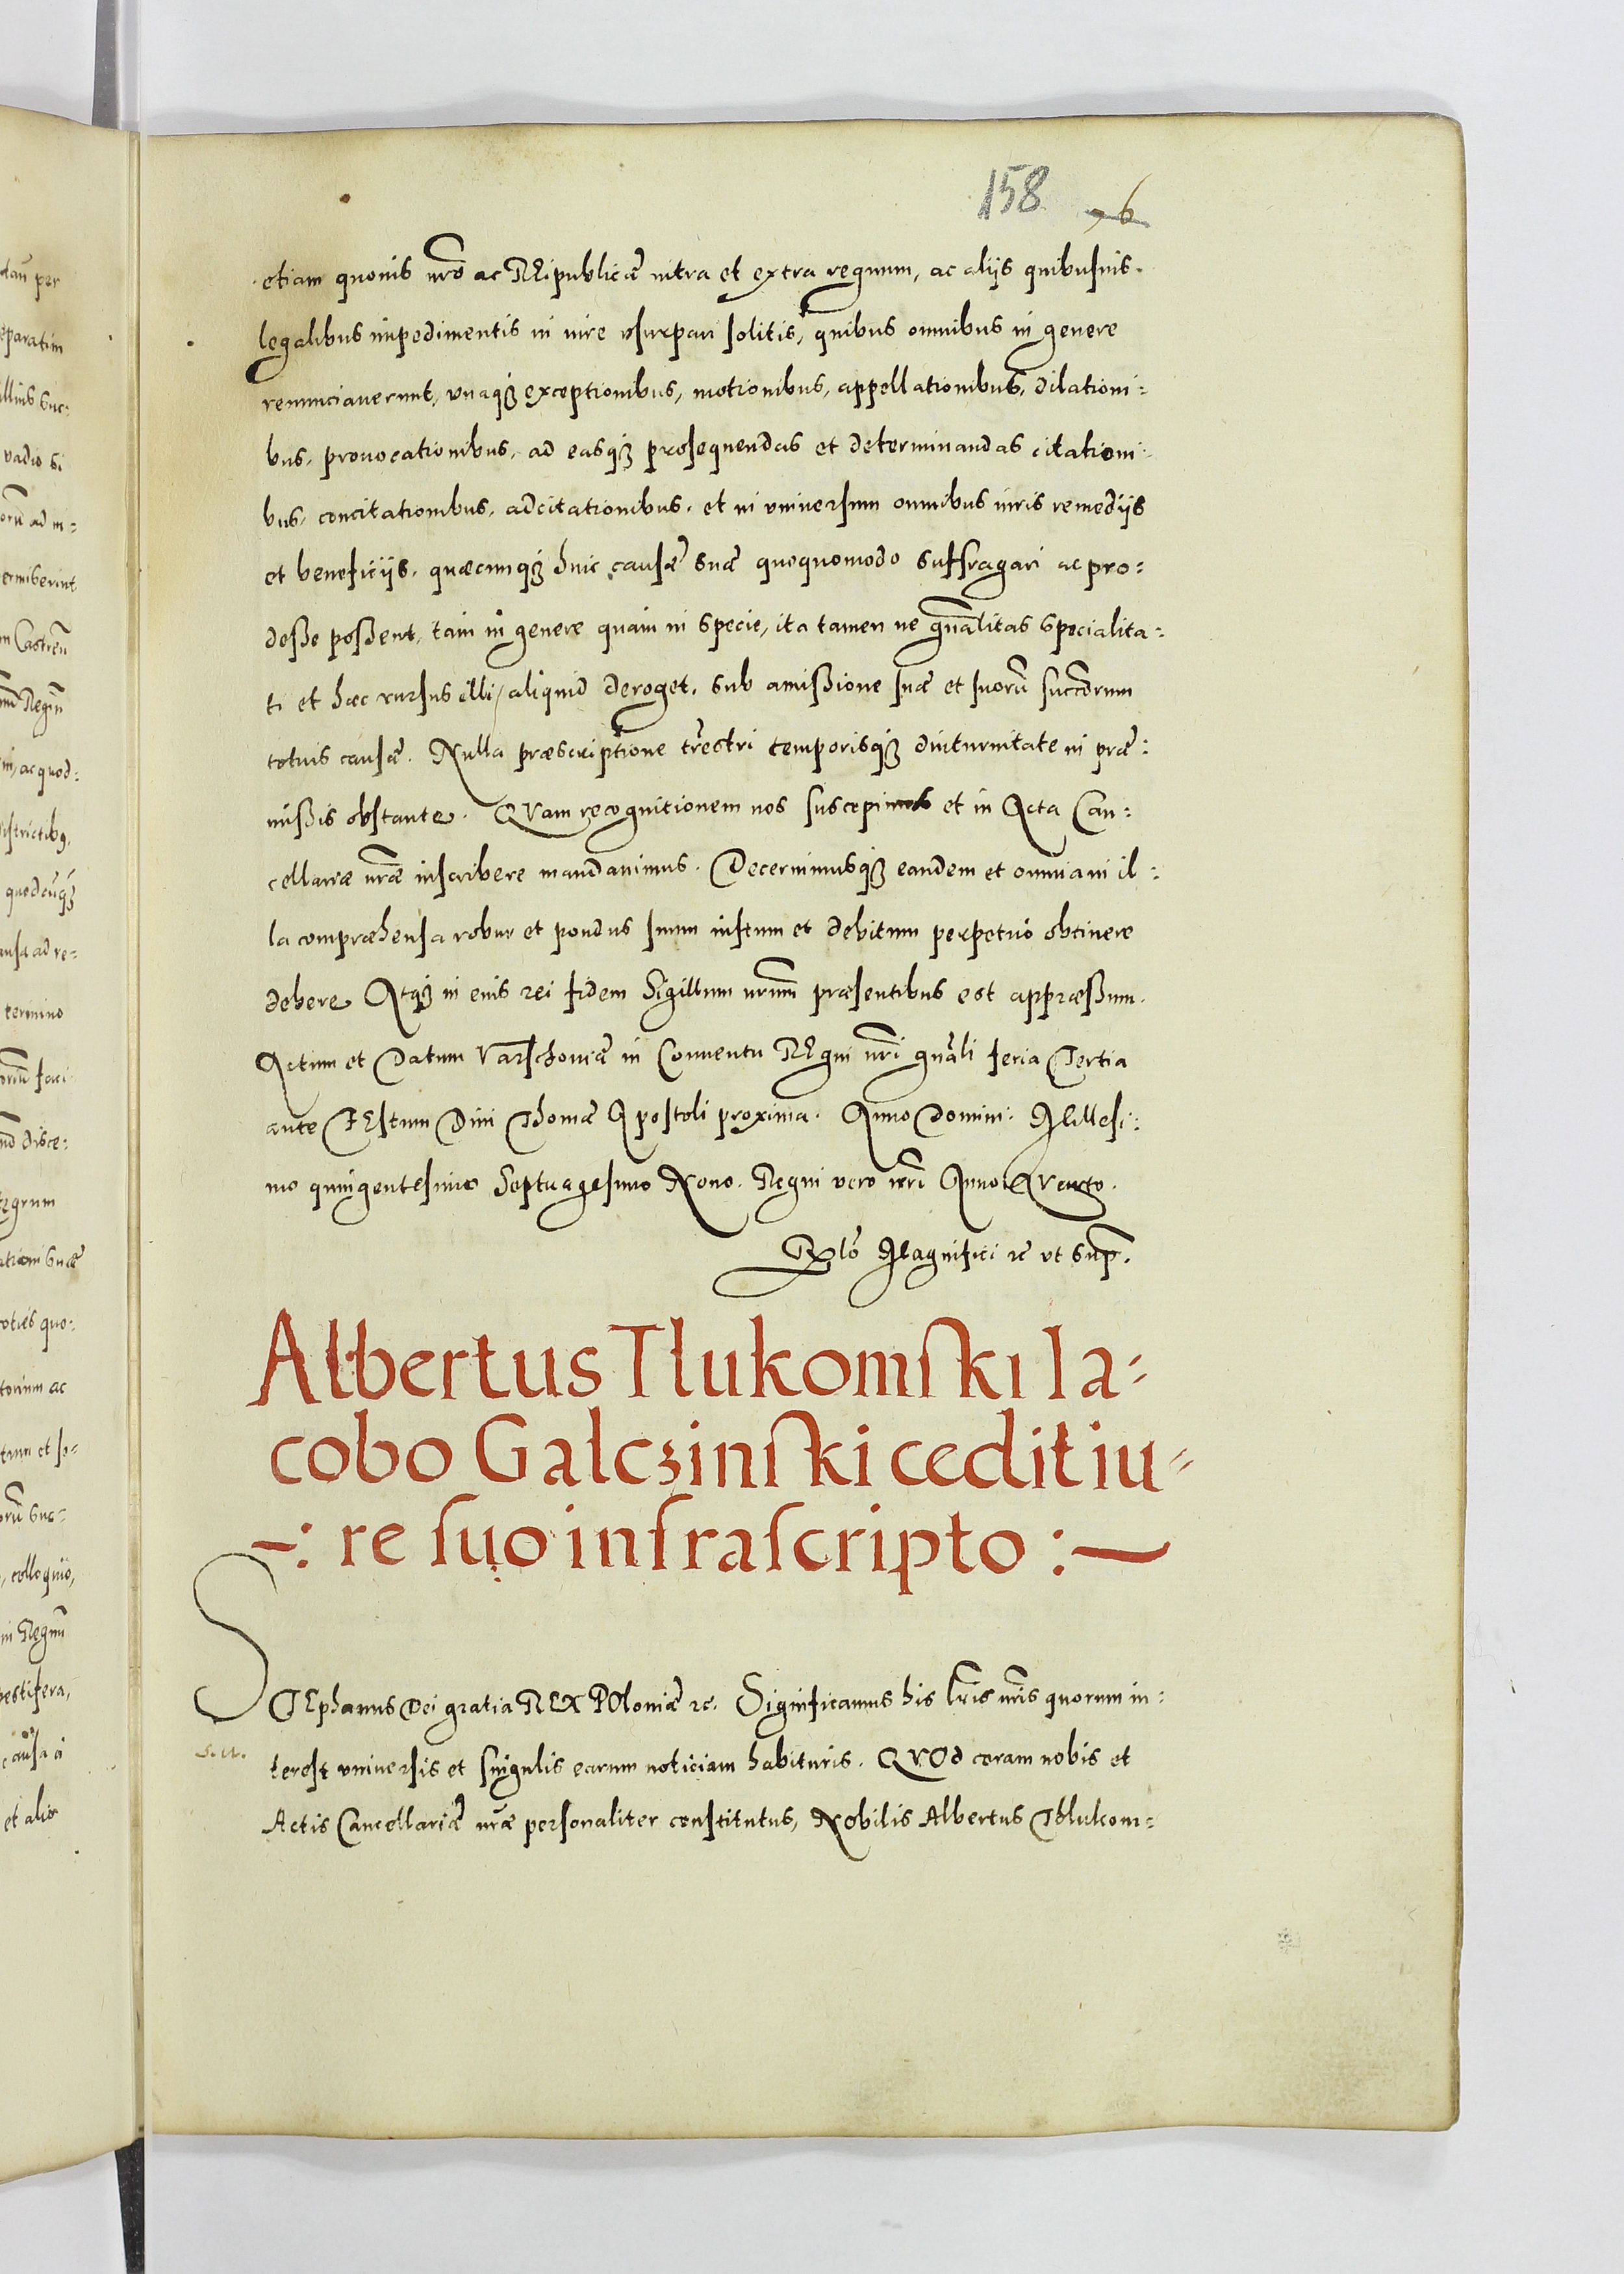 158 76
etiam quouis nrō ac REipublicæ intra et extra regnum, ac alijs quibusuis
legalibus impedimentis in iure vsurpari solitis, quibus omnibus in genere
renunciauerunt, vnaqȝ exceptionibus, motionibus, appellationibus, dilationi:
bus, prouocationibus, ad easqȝ prosequendas et determinandas citationi:
bus, concitationibus, adcitationibus, et in vniuersum omnibus iuris remedijs
et beneficijs, quæcunqȝ huic causæ suæ quoquomodo suffragari ac pro:
desse possent, tam in genere quam in specie, ita tamen ne gnāalitas specialita:
ti et hæc rursus illi aliquid deroget, sub amissione suæ et suorū succōrum
totius causæ. Nulla præscriptione trēstri temporisqȝ diuturnitate in præ:
missis obstante. QVam recognitionem nos suscepimus et in Acta Can:
cellariæ nrāe inscribere mandauimus. Decernimusqȝ eandem et omnia in il:
la compræhensa robur et pondus suum iustum et debitum perpetuo obtinere
debere Atqȝ in eius rei fidem Sigillum nrum̄ præsentibus est appræssum.
Actum et Datum Varschouiæ in Conuentu REgni nrī gnāli feria Tertia
ante FEstum Diui Thomæ Apostoli proxima. Anno Domini: Millesi:
mo quingentesimo Septuagesimo Nono. Regni vero nrī Anno QVarto.
Rlō Magnifici ꝛc vt sup.
Albertus Tlukomski Ia-
cobo Galczinski cedit iu-
-: re suo infrascripto :-
STEphanus Dei gratia REX POloniæ ꝛc. Significamus his lrīs nrīs quorum in:
S. N.
terest vniuersis et singulis earum noticiam habituris. QVOd coram nobis et
Actis Cancellariæ nrāe personaliter constitutus, Nobilis Albertus Thlukom: